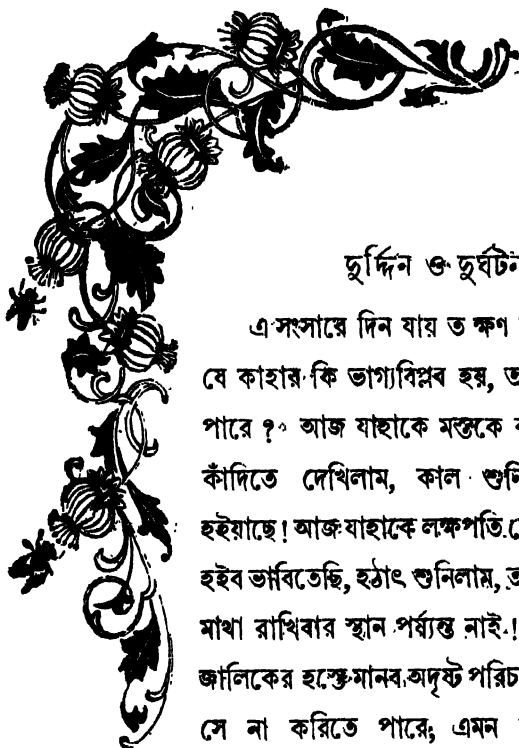 দুর্দ্দিন ও দুর্ঘটন
এ সংসারে দিন যায় ত ক্ষণ
যে কাহার কি ভাগ্যবিপ্লব হয়,
পারে ? আজ যাহাকে মস্তকে
কাঁদিতে দেখিলাম, কাল শুনি
হইয়াছে ! আজ যাহাকে লক্ষপতি
হইব ভাবিতেছি, হঠাৎ শুনিলাম,
মাথা রাখিবার স্থান পর্য্যন্ত নাই !
জালিকের হস্তে মানব অদৃষ্ট পরিচ
সে না করিতে পারে; এমন